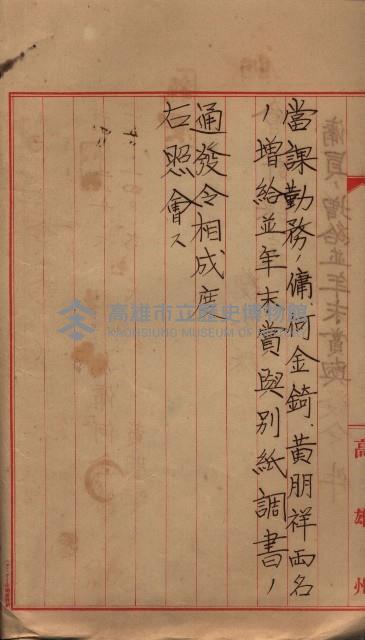 當課勤務ノ傭何金錡、黃朋祥両名
ノ増給並年末賞與別紙調書ノ
通發令相成度
右照會ス
高雄州
高雄市立歷史博物館
KAOHSIUNG MUSEUM OF HISTORY